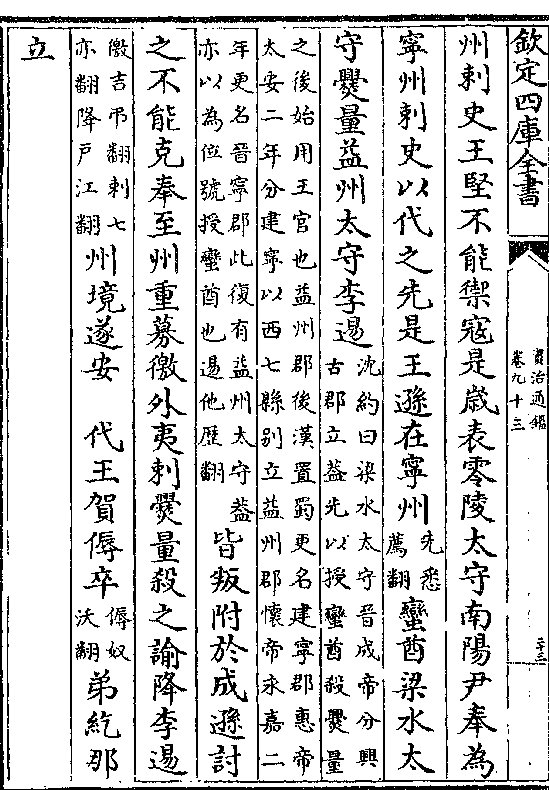 欽定四庫全書
資治通鑑
卷九十三
二十三
州刺史王堅不能禦寇是歲表零陵太守南陽尹奉為
寧州刺史以代之先是王遜在寧州
先悉
薦翻
蠻酋梁水太
守爨量益州太守李逷
沈約曰梁水太守晉成帝分興
古郡立蓋先以授蠻酋殺爨量
之後始用王官也益州郡後漢置蜀更名建寧郡惠帝
太安二年分建寧以西七縣别立益州郡懷帝永嘉二
年更名晉寧郡此復有益州太守蓋
亦以為位號授蠻酋也逷他歷翻
皆叛附於成遜討
之不能克奉至州重募徼外夷刺爨量殺之諭降李逷
徼吉弔翻刺七
亦翻降戸江翻
州境遂安
代王賀傉卒
傉奴
沃翻
弟紇那
立